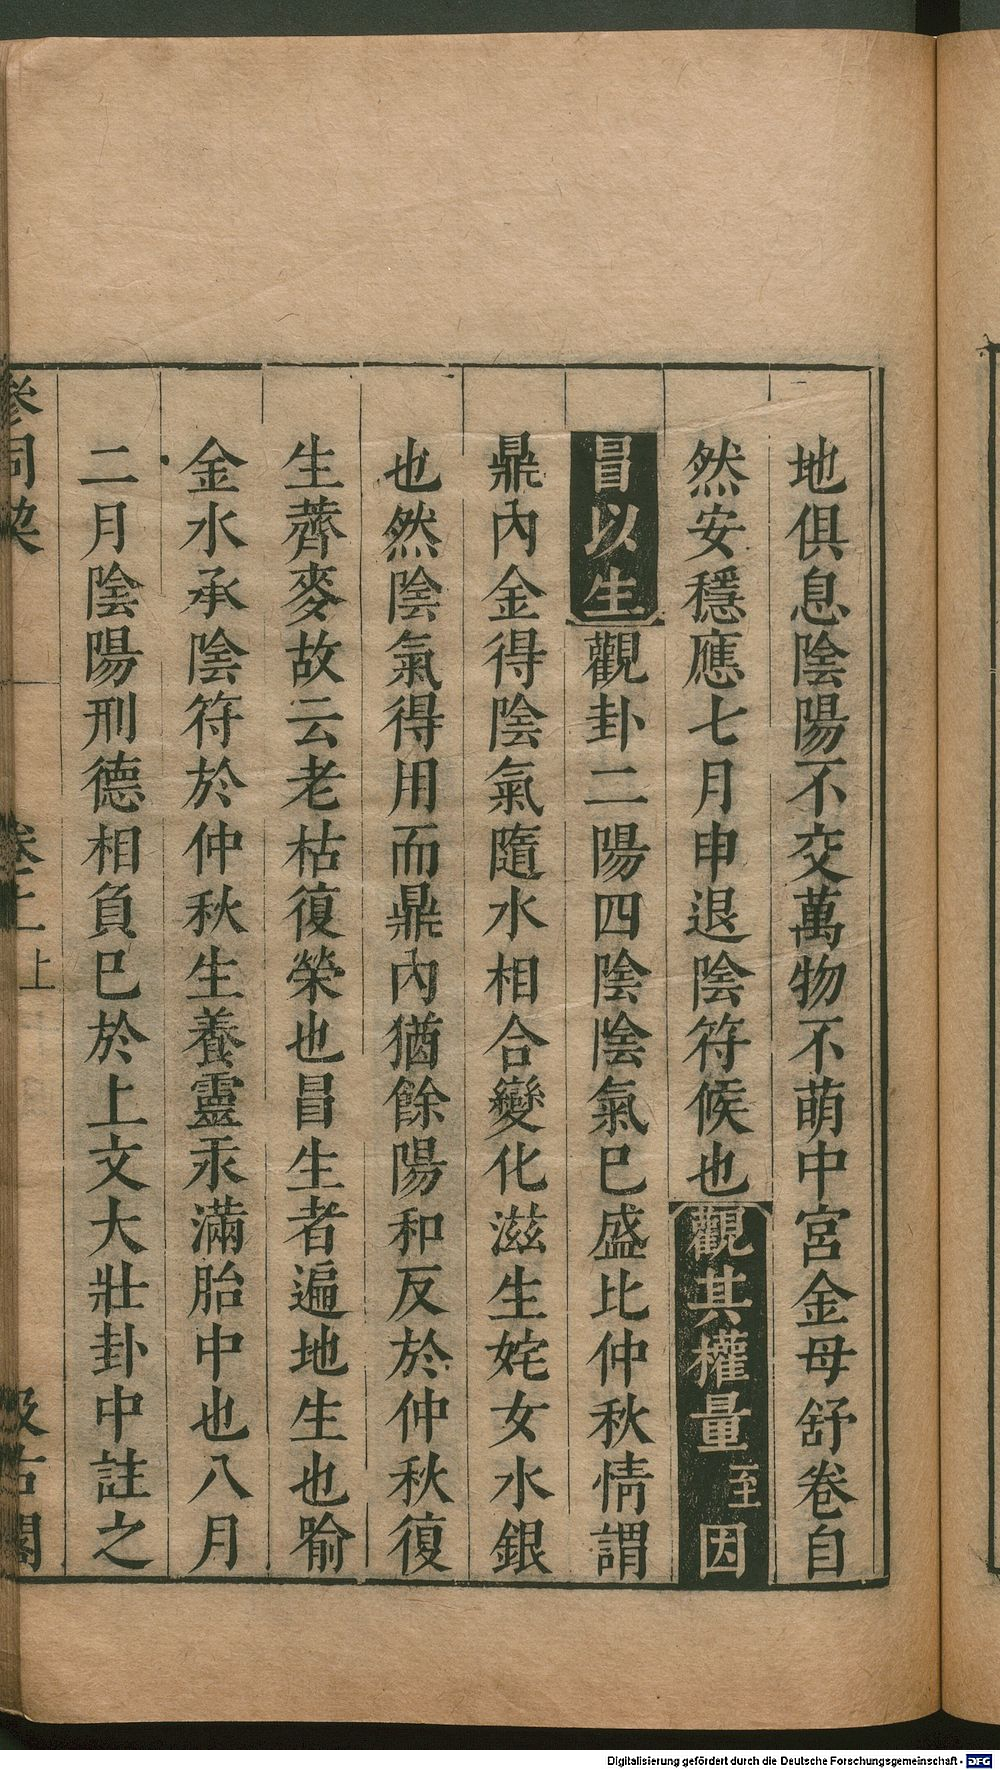 地俱息陰陽不交萬物不萌中宮金母舒卷自
然安穩應七月申退陰符候也觀其權量至因
冒以生觀卦二陽四陰陰氣巳盛比仲秋情謂
鼎內金得陰氣隨水相合變化滋生姹女水銀
也然陰氣得用而鼎內猶餘陽和反於仲秋復
生薺麥故云老枯復榮也冒生者遍地生也喻
金水承陰符於仲秋生養靈汞滿胎中也八月
二月陰陽刑德相負巳於上文大壯卦中註之
參同 卷二上 汲古閣
Digitalisierung gefördert durch die Deutsche Forschungsgemeinschaft - DFG